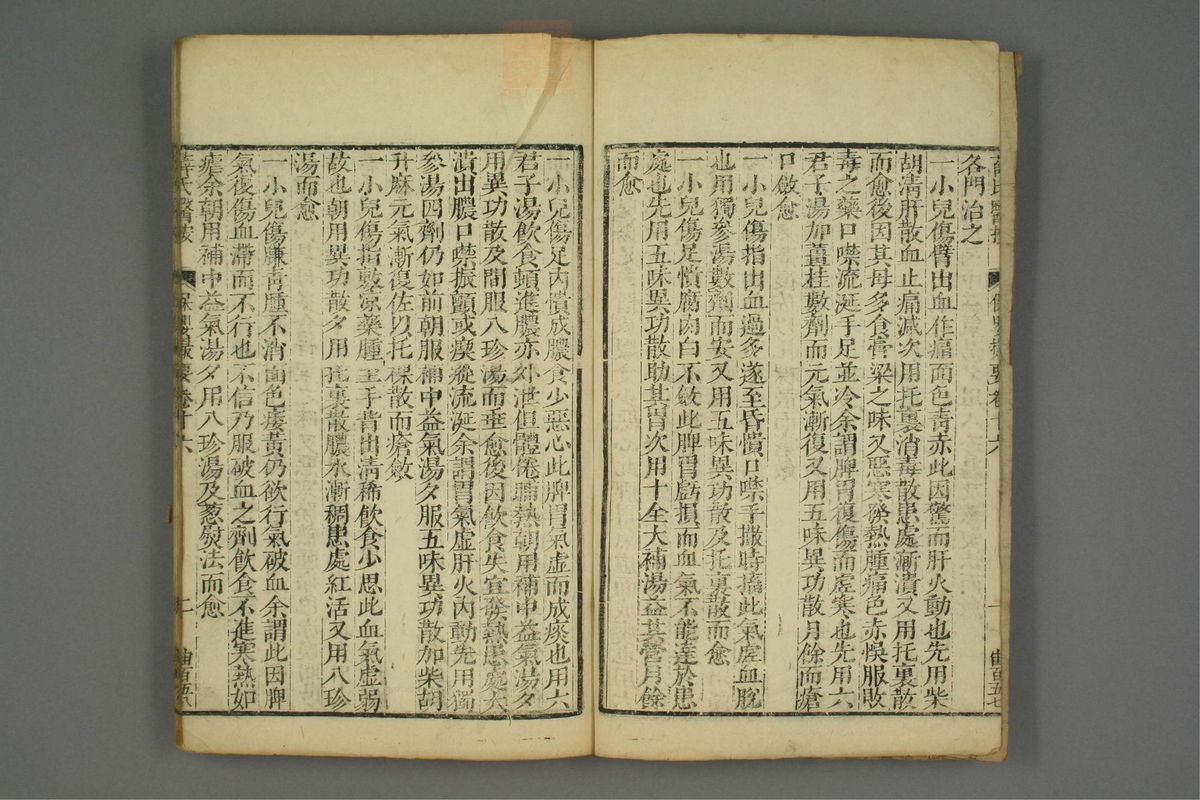 各門治之
一小兒傷臂出血作痛面色青赤此因驚而肝火動也先用柴
胡清肝散血止痛減次用托裏消毒散患處漸潰又用托裏散
而愈後因其母多食膏梁之味又惡寒發熱腫痛色赤悞服敗
毒之藥口噤流涎手足並冷余謂脾胃復傷而虛寒也先用六
君子湯加薑桂數劑而元氣漸復又用五味異功散月餘而瘡
口斂愈
一小兒傷指出血過多遂至昏憒口噤手撒時搐此氣虛血脫
也用獨參湯數劑而安又用五味異功散及托裏散而愈
一小兒傷足潰腐肉白不斂此脾胃虧損而血氣不能達於患
處也先用五味異功散助其胃次用十全大補湯益其營月餘
而愈
一小兒傷足內潰成膿食少惡心此脾胃氣虛而成痰也用六
君子湯飲食頓進膿亦外泄但體倦晡熱朝用補中益氣湯夕
用異功散及間服八珍湯而垂愈後因飲食失宜發熱患處大
潰出膿口噤振顫或瘈瘲流涎余謂胃氣虛肝火內動先用獨
參湯四劑仍如前朝服補中益氣湯夕服五味異功散加柴胡
升麻元氣漸復佐以托裏散而瘡斂
一小兒傷指敷凉藥腫至手背出清稀飲食少思此血氣虛弱
故也朝用異功散夕用托裏散膿水漸稠患處紅活又用八珍
湯而愈
一小兒傷臁青腫不消面色痿黃仍欲行氣破血余謂此因脾
氣復傷血滯而不行也不信乃服破血之劑飲食不進寒熱如
瘧余朝用補中益氣湯夕用八珍湯及葱熨法而愈
薛氏醫按 保嬰撮要卷十六